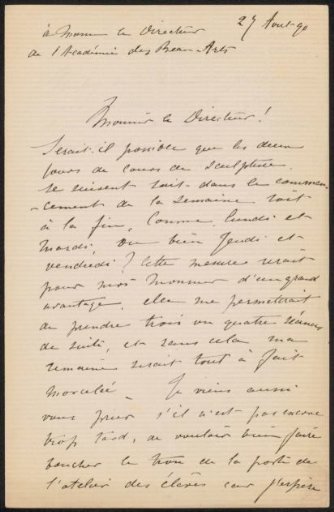 27 Aout 90
à Monsr le Directeur
de l'Académie des Beaux-Arts
Monsieur le Directeur!
Serait-il possible que les deux
jours de cours de sculpture
se suivent soit dans le commen
-cement de la semaine soit
à la fin, comme lundi et
mardi, ou bien Jeudi et
vendredi? Cette mesure serait
pour moi Monsieur d'un grand
avantage, elle me permettrait
de prendre trois ou quatre séances
de suite, et sans cela ma
semaine serait tout à fait
morcelée — Je viens aussi
vous prier s'il n'est pas encore
trop tard, de vouloir bien faire
boucher le trou de la porte de
l'atelier des élèves car j'espère